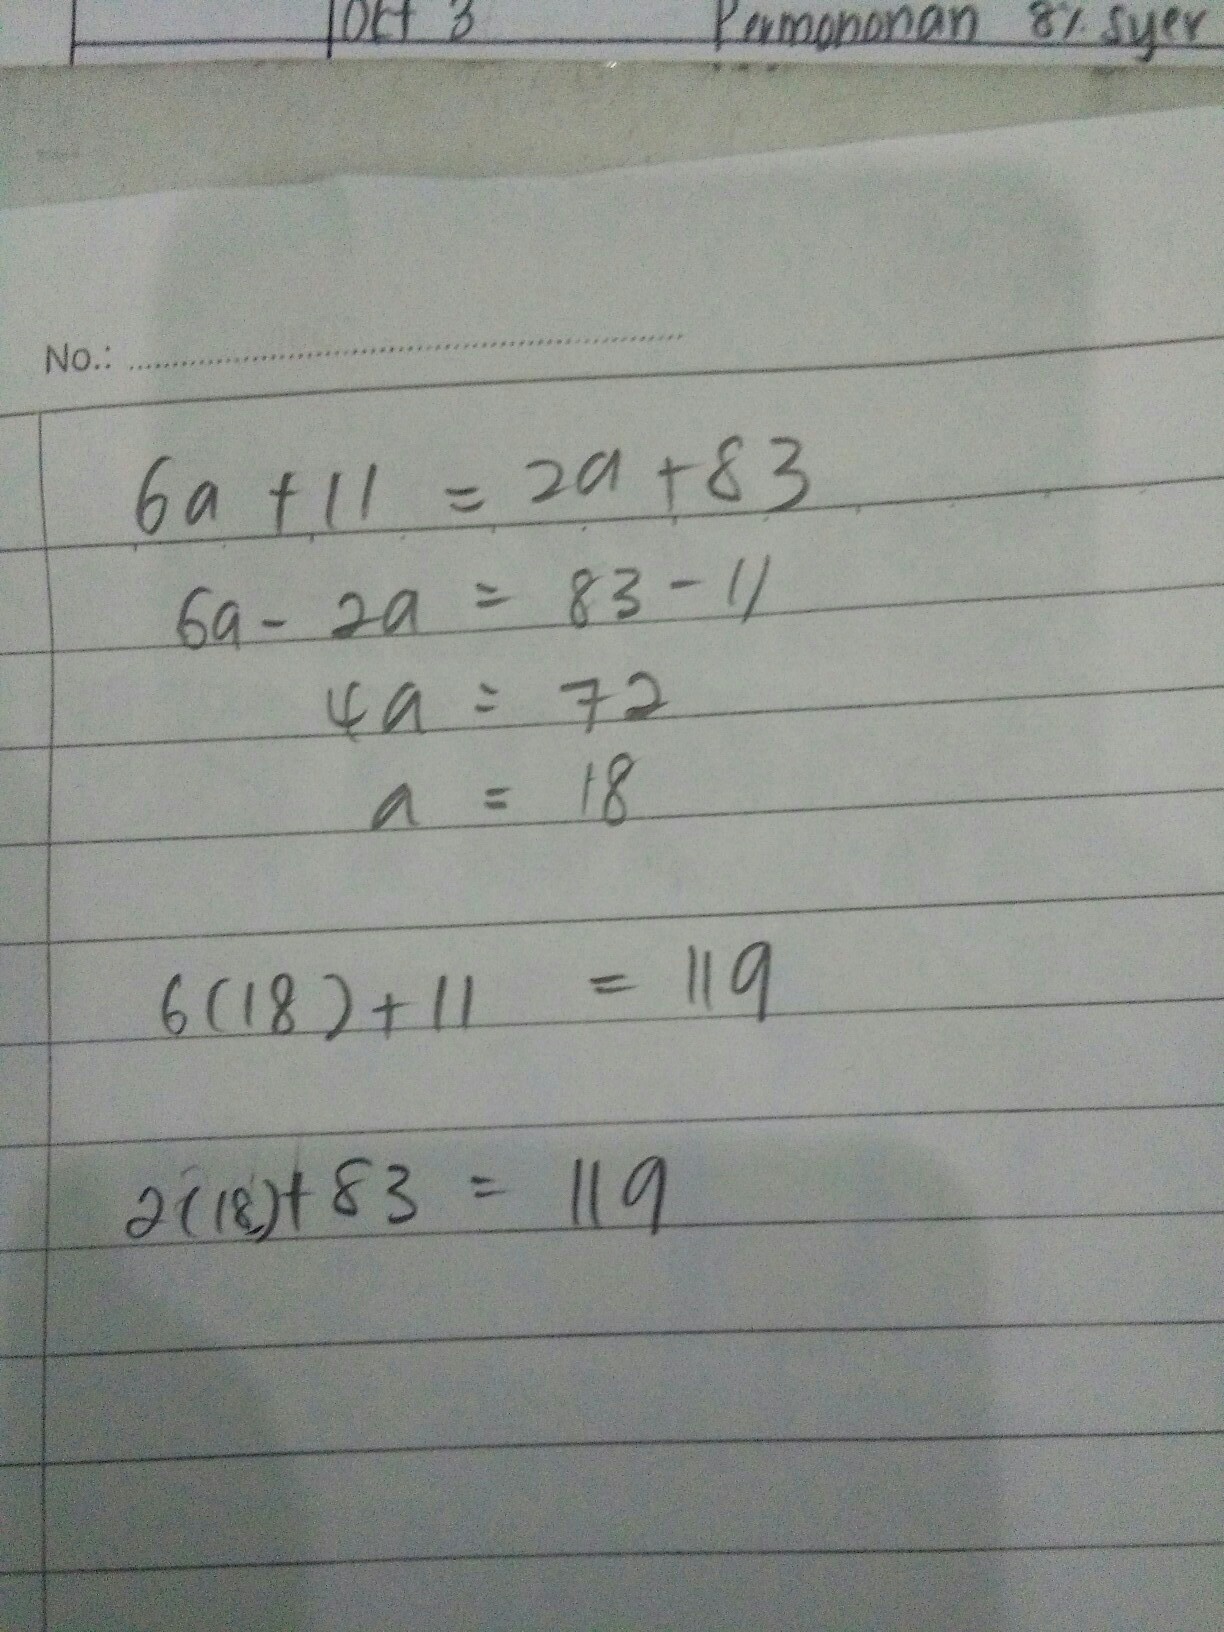 Okt 3 Permohonan 8% syer
No.:
6a + 11 = 2a + 83
6a - 2a = 83 - 11
4a = 72
a = 18
6(18) + 11 = 119
2(18) + 83 = 119